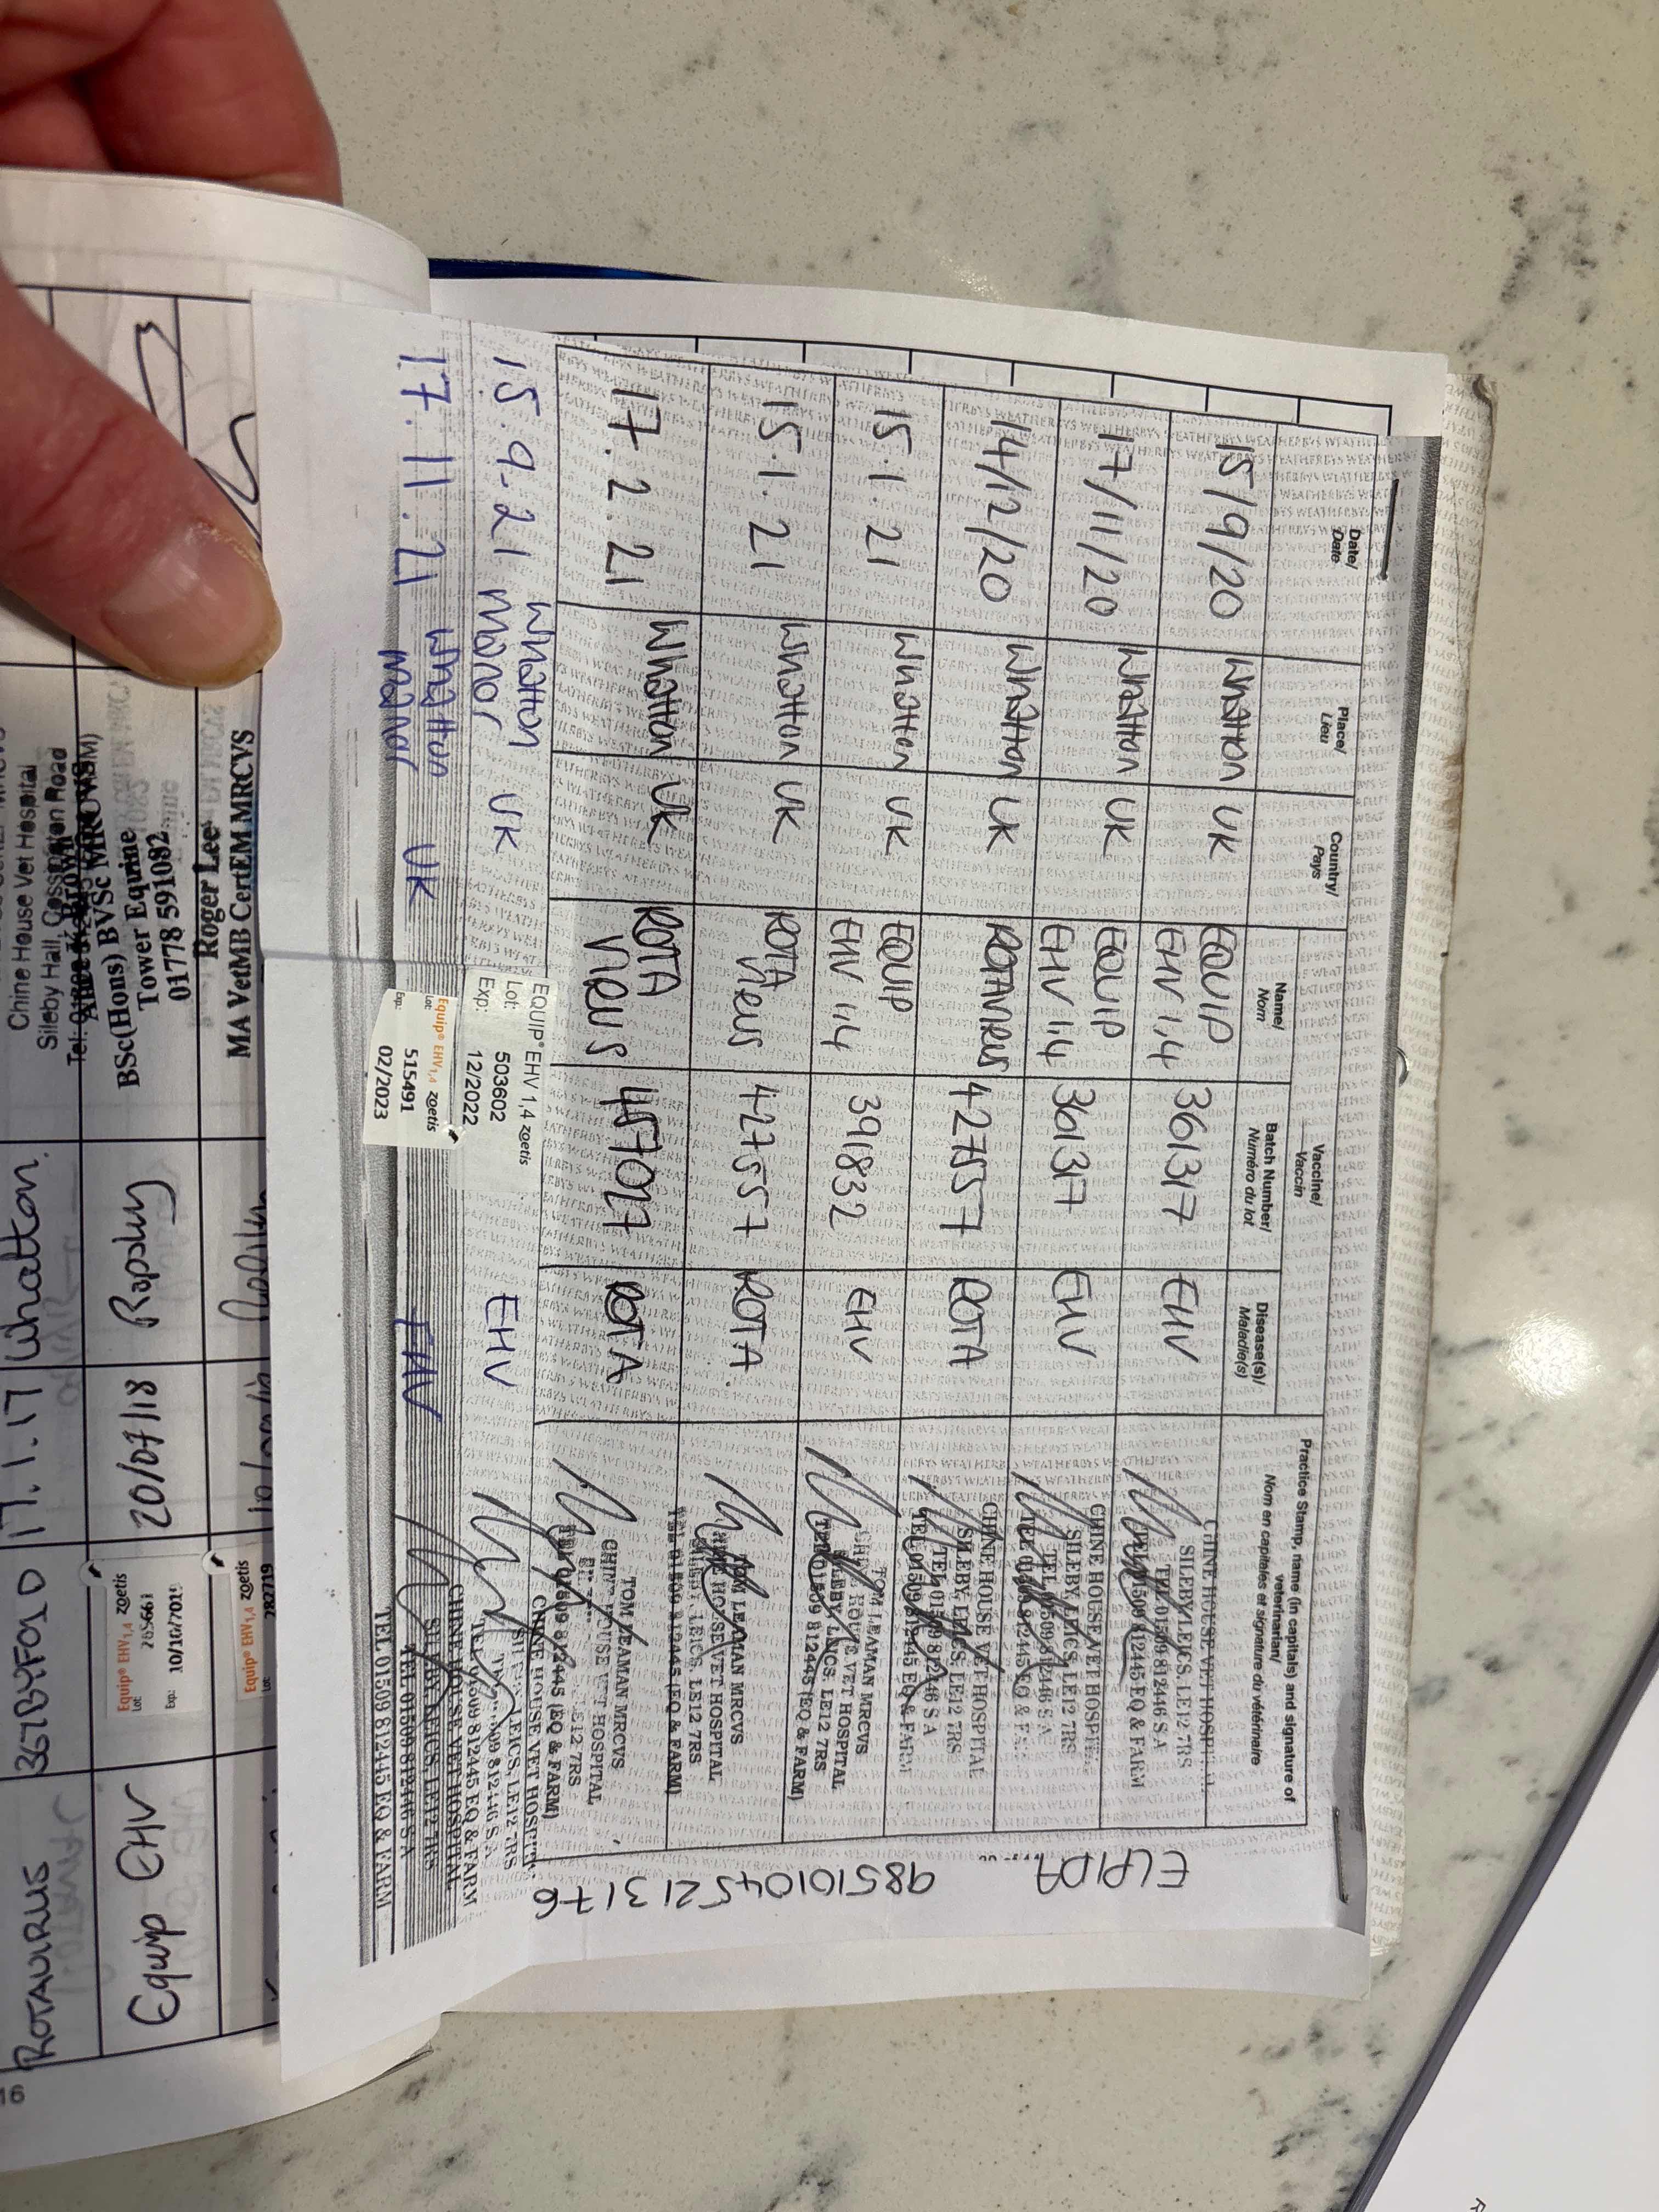 Date/
Date
Place/
Lieu
Country/
Pays
Vaccine/
Vaccin
Name/
Nom
Batch Number/
Numéro du lot
Disease(s)/
Maladie(s)
Practice Stamp, name (in capitals) and signature of
veterinarian/
Nom en capitales et signature du vétérinaire
15/9/20 Whatton UK EQUIP EHV 1,4 361317 EHV
CHINE HOUSE VET HOSPITAL
SILEBY, LEICS, LE12 7RS
TEL 01509 812446 S.A
TEL 01509 812445 EQ & FARM
17/11/20 Whatton UK EQUIP EHV 1,4 361317 EHV
CHINE HOUSE VET HOSPITAL
SILEBY, LEICS, LE12 7RS
TEL 01509 812446 S.A
TEL 01509 812445 EQ &
14/12/20 Whatton UK ROTAVIRUS 427557 ROTA
CHINE HOUSE VET HOSPITAL
SILEBY, LEICS, LE12 7RS
TEL 01509 812446 S A
TEL 01509 812445 EQ & FARM
15.1.21 Whatton UK EQUIP EHV 1,4 391832 EHV
TOM LEAMAN MRCVS
CHINE HOUSE VET HOSPITAL
SILEBY, LEICS. LE12 7RS
TEL 01509 812445 (EQ & FARM)
15.1.21 Whatton UK ROTA VIRUS 427557 ROTA
TOM LEAMAN MRCVS
CHINE HOUSE VET HOSPITAL
SILEBY, LEICS. LE12 7RS
TEL 01509 812445 (EQ & FARM)
17.2.21 Whatton UK ROTA VIRUS 457027 ROTA
TOM LEAMAN MRCVS
CHINE HOUSE VET HOSPITAL
LE12 7RS
TEL 01509 812445 (EQ & FARM)
15.9.21 Whatton Manor UK
EQUIP® EHV 1,4 zoetis
Lot: 503602
Exp: 12/2022
EHV
CHINE HOUSE VET HOSPITAL
SILEBY, LEICS, LE12 7RS
TEL 01509 812446 S.A
TEL 01509 812445 EQ & FARM
17.11.21 Whatton Manor UK
Equip® EHV1,4 zoetis
Lot: 515491
Exp: 02/2023
EHV
CHINE HOUSE VET HOSPITAL
SILEBY, LEICS, LE12 7RS
TEL 01509 812446 S.A
TEL 01509 812445 EQ & FARM
ELPIDA 985101045213176
Roger Lee
MA VetMB CertEM MRCVS
Equip® EHV1,4 zoetis
Lot: 282719
BSc(Hons) BVSc MRCVS
Tower Equine
01778 591082
Ropsley
20/07/18
Equip® EHV1,4 zoetis
Lot: 265661
Exp:
Equip EHV
Chine House Vet Hospital
Sileby Hall, Cossington Road
Whatton
17.1.17
367BYF01D
ROTAVIRUS
16